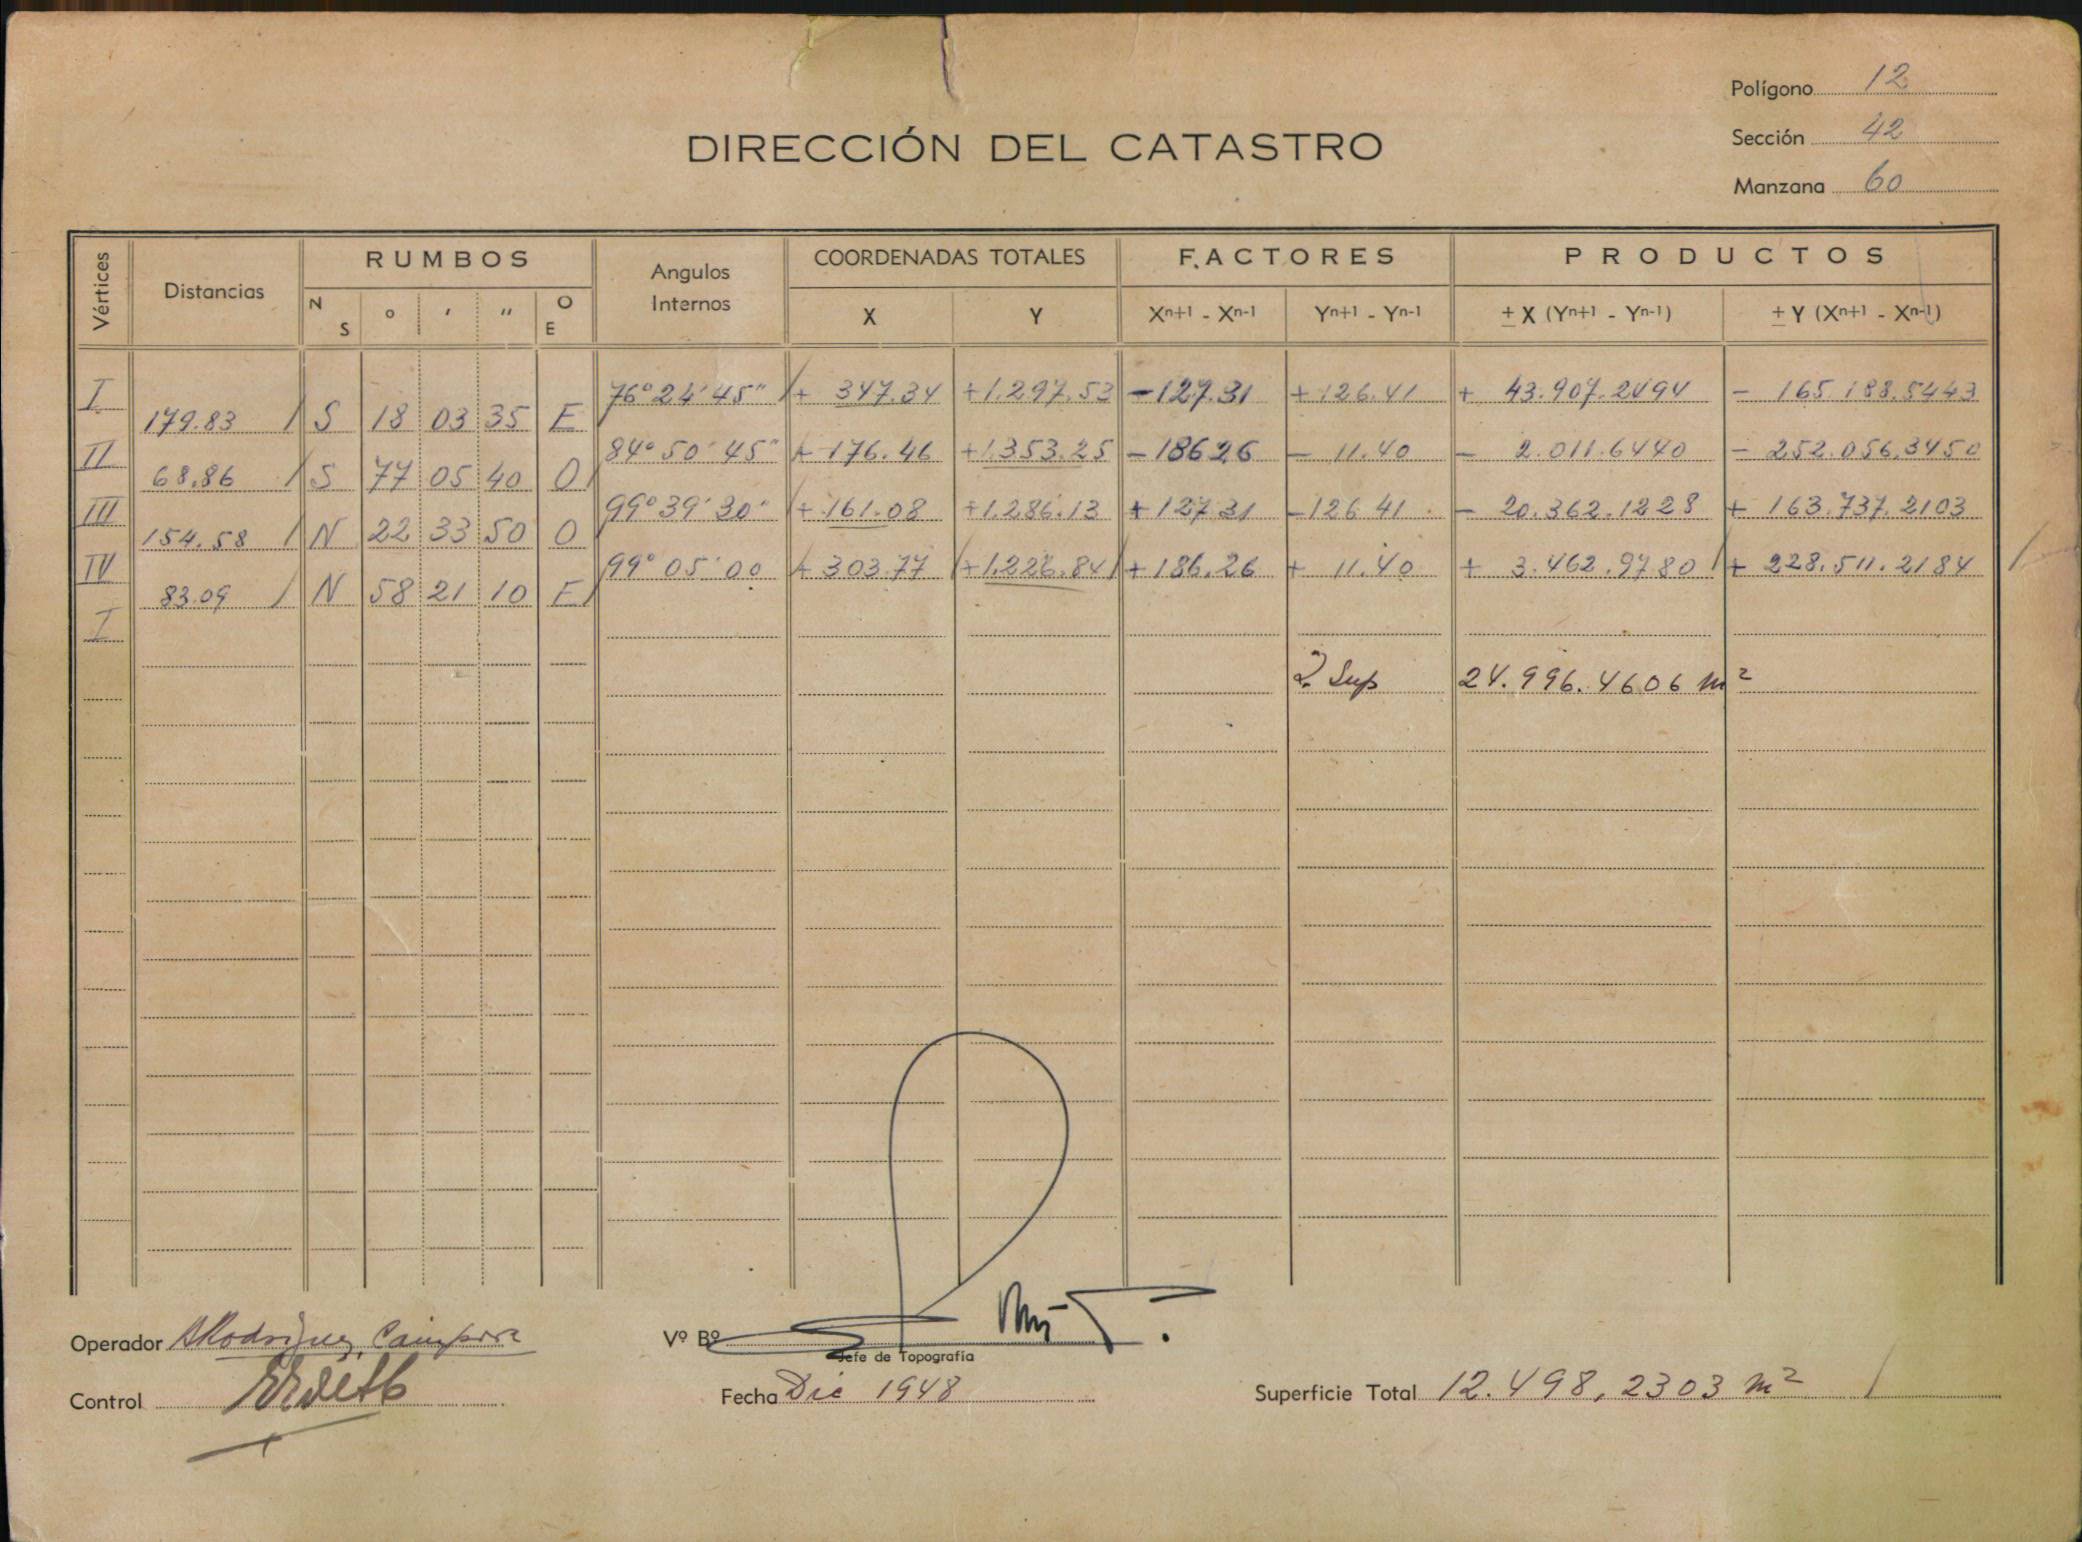 Polígono 12
Sección 42
Manzana 60
DIRECCIÓN DEL CATASTRO
Vértices Distancias RUMBOS Angulos Internos COORDENADAS TOTALES FACTORES PRODUCTOS
N S ° ' " O E X Y Xn+1 - Xn-1 Yn+1 - Yn-1 ± X (Yn+1 - Yn-1) ± Y (Xn+1 - Xn-1)
I 76° 24' 45" + 347.34 +1.297.53 -127.31 +126.41 + 43.907.2494 - 165.188.5443
179.83 / S 18 03 35 E
II 84° 50' 45" + 176.46 +1.353.25 -186 26 - 11.40 - 2.011.6440 - 252.056.3450
68.86 / S 77 05 40 O
III 99° 39' 30" + 161.08 +1.286.13 +127.31 -126 41 - 20.362.1228 + 163.737.2103
154.58 / N 22 33 50 O
IV 99° 05' 00 + 303.77 +1.226.84 +186.26 + 11.40 + 3.462.9780 + 228.511.2184
83.09 / N 58 21 10 E
I
2 Sup 24.996.4606 m²
Operador
Vº Bº
Jefe de Topografía
Control
Fecha Dic 1948
Superficie Total 12.498,2303 m²